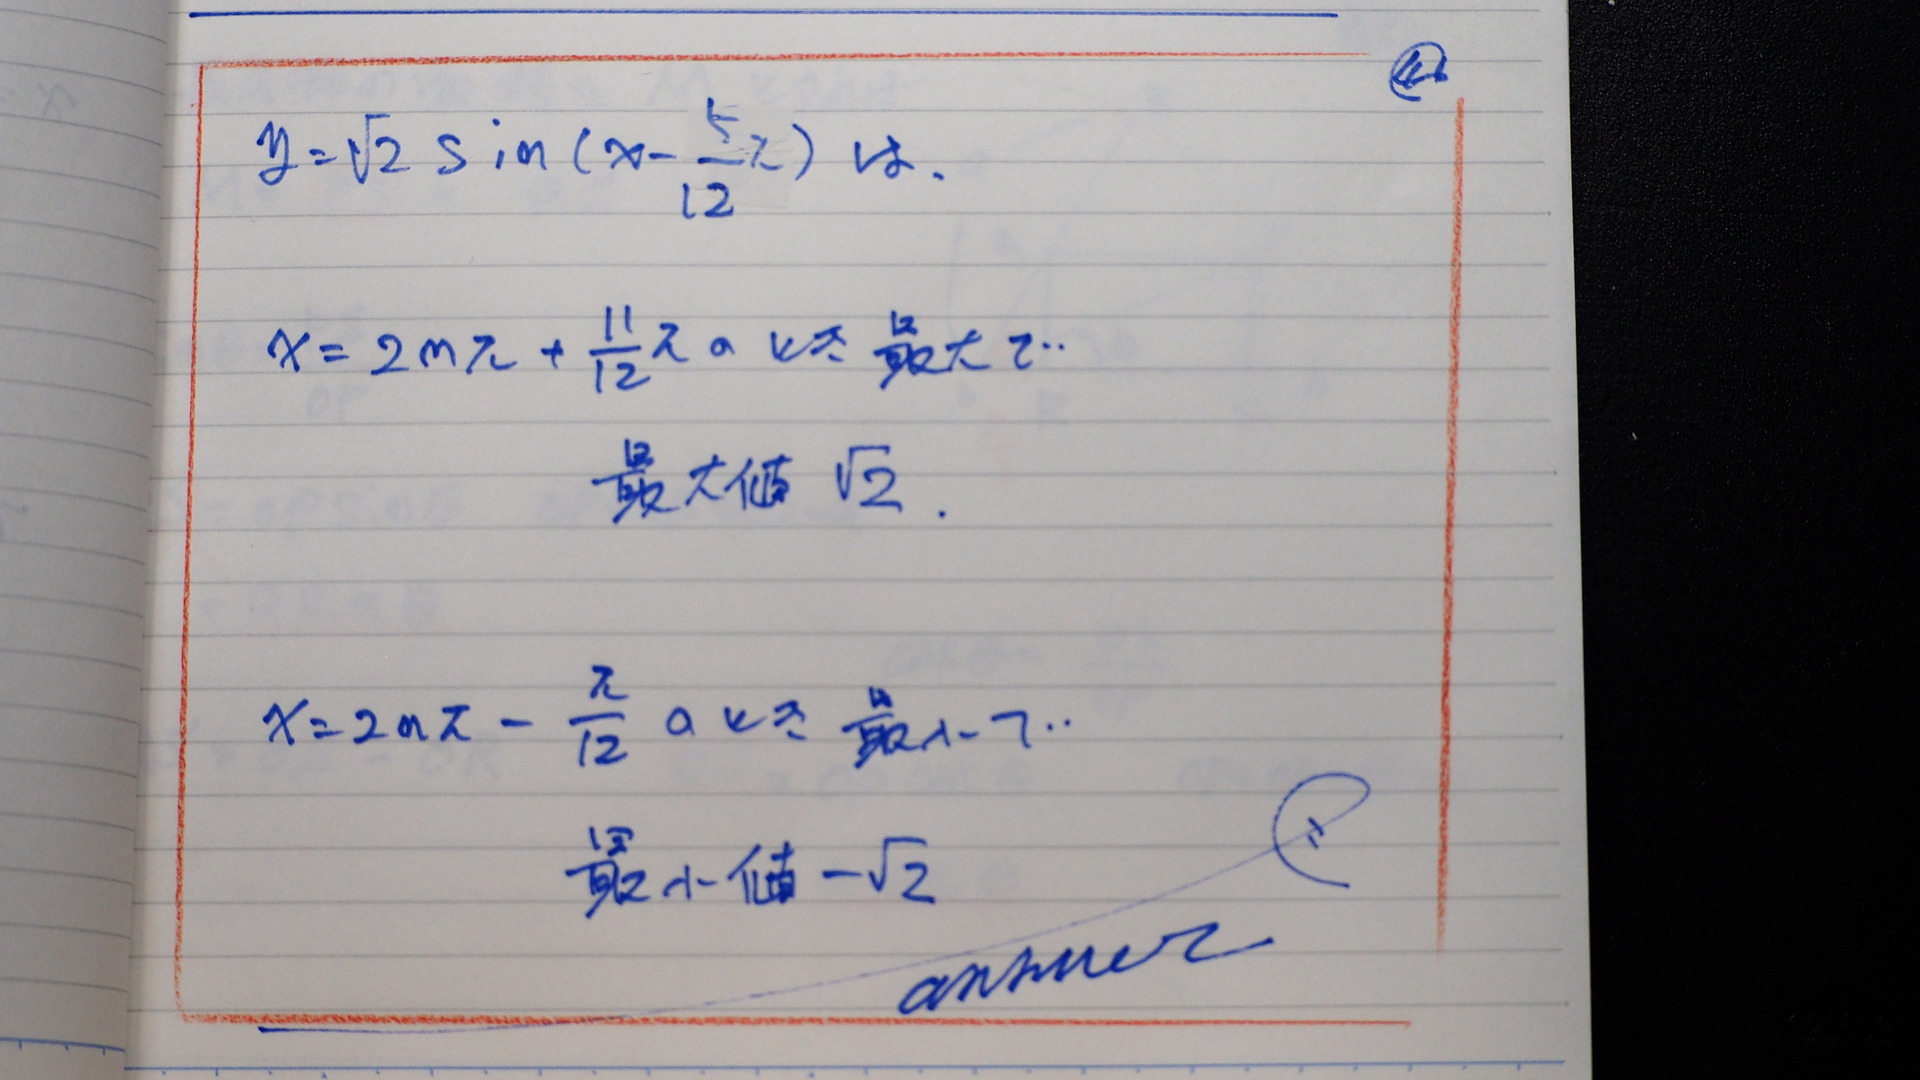 y=√2 sin(x-5/12π)は、
x=2nπ+11/12πのとき最大で
最大値 √2.
x=2nπ-π/12のとき最小で
最小値 -√2
answer